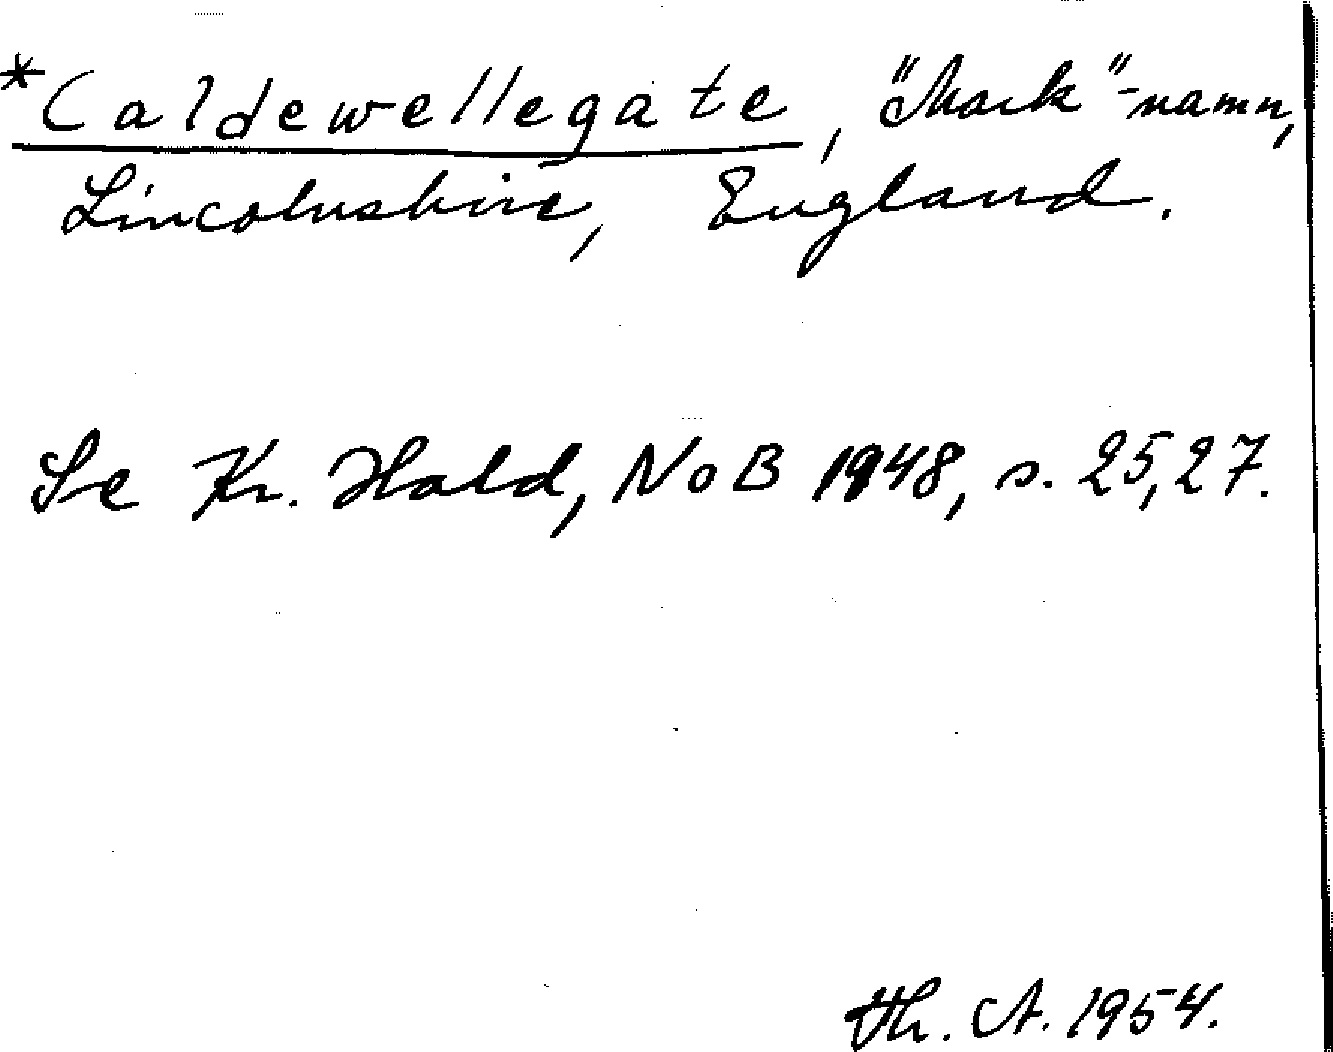 *Caldewellegate, "Mark"-namn,
Lincolnshire, England.
Se Kr. Hald, NoB 1948, s. 25, 27.
Th. A. 1954.